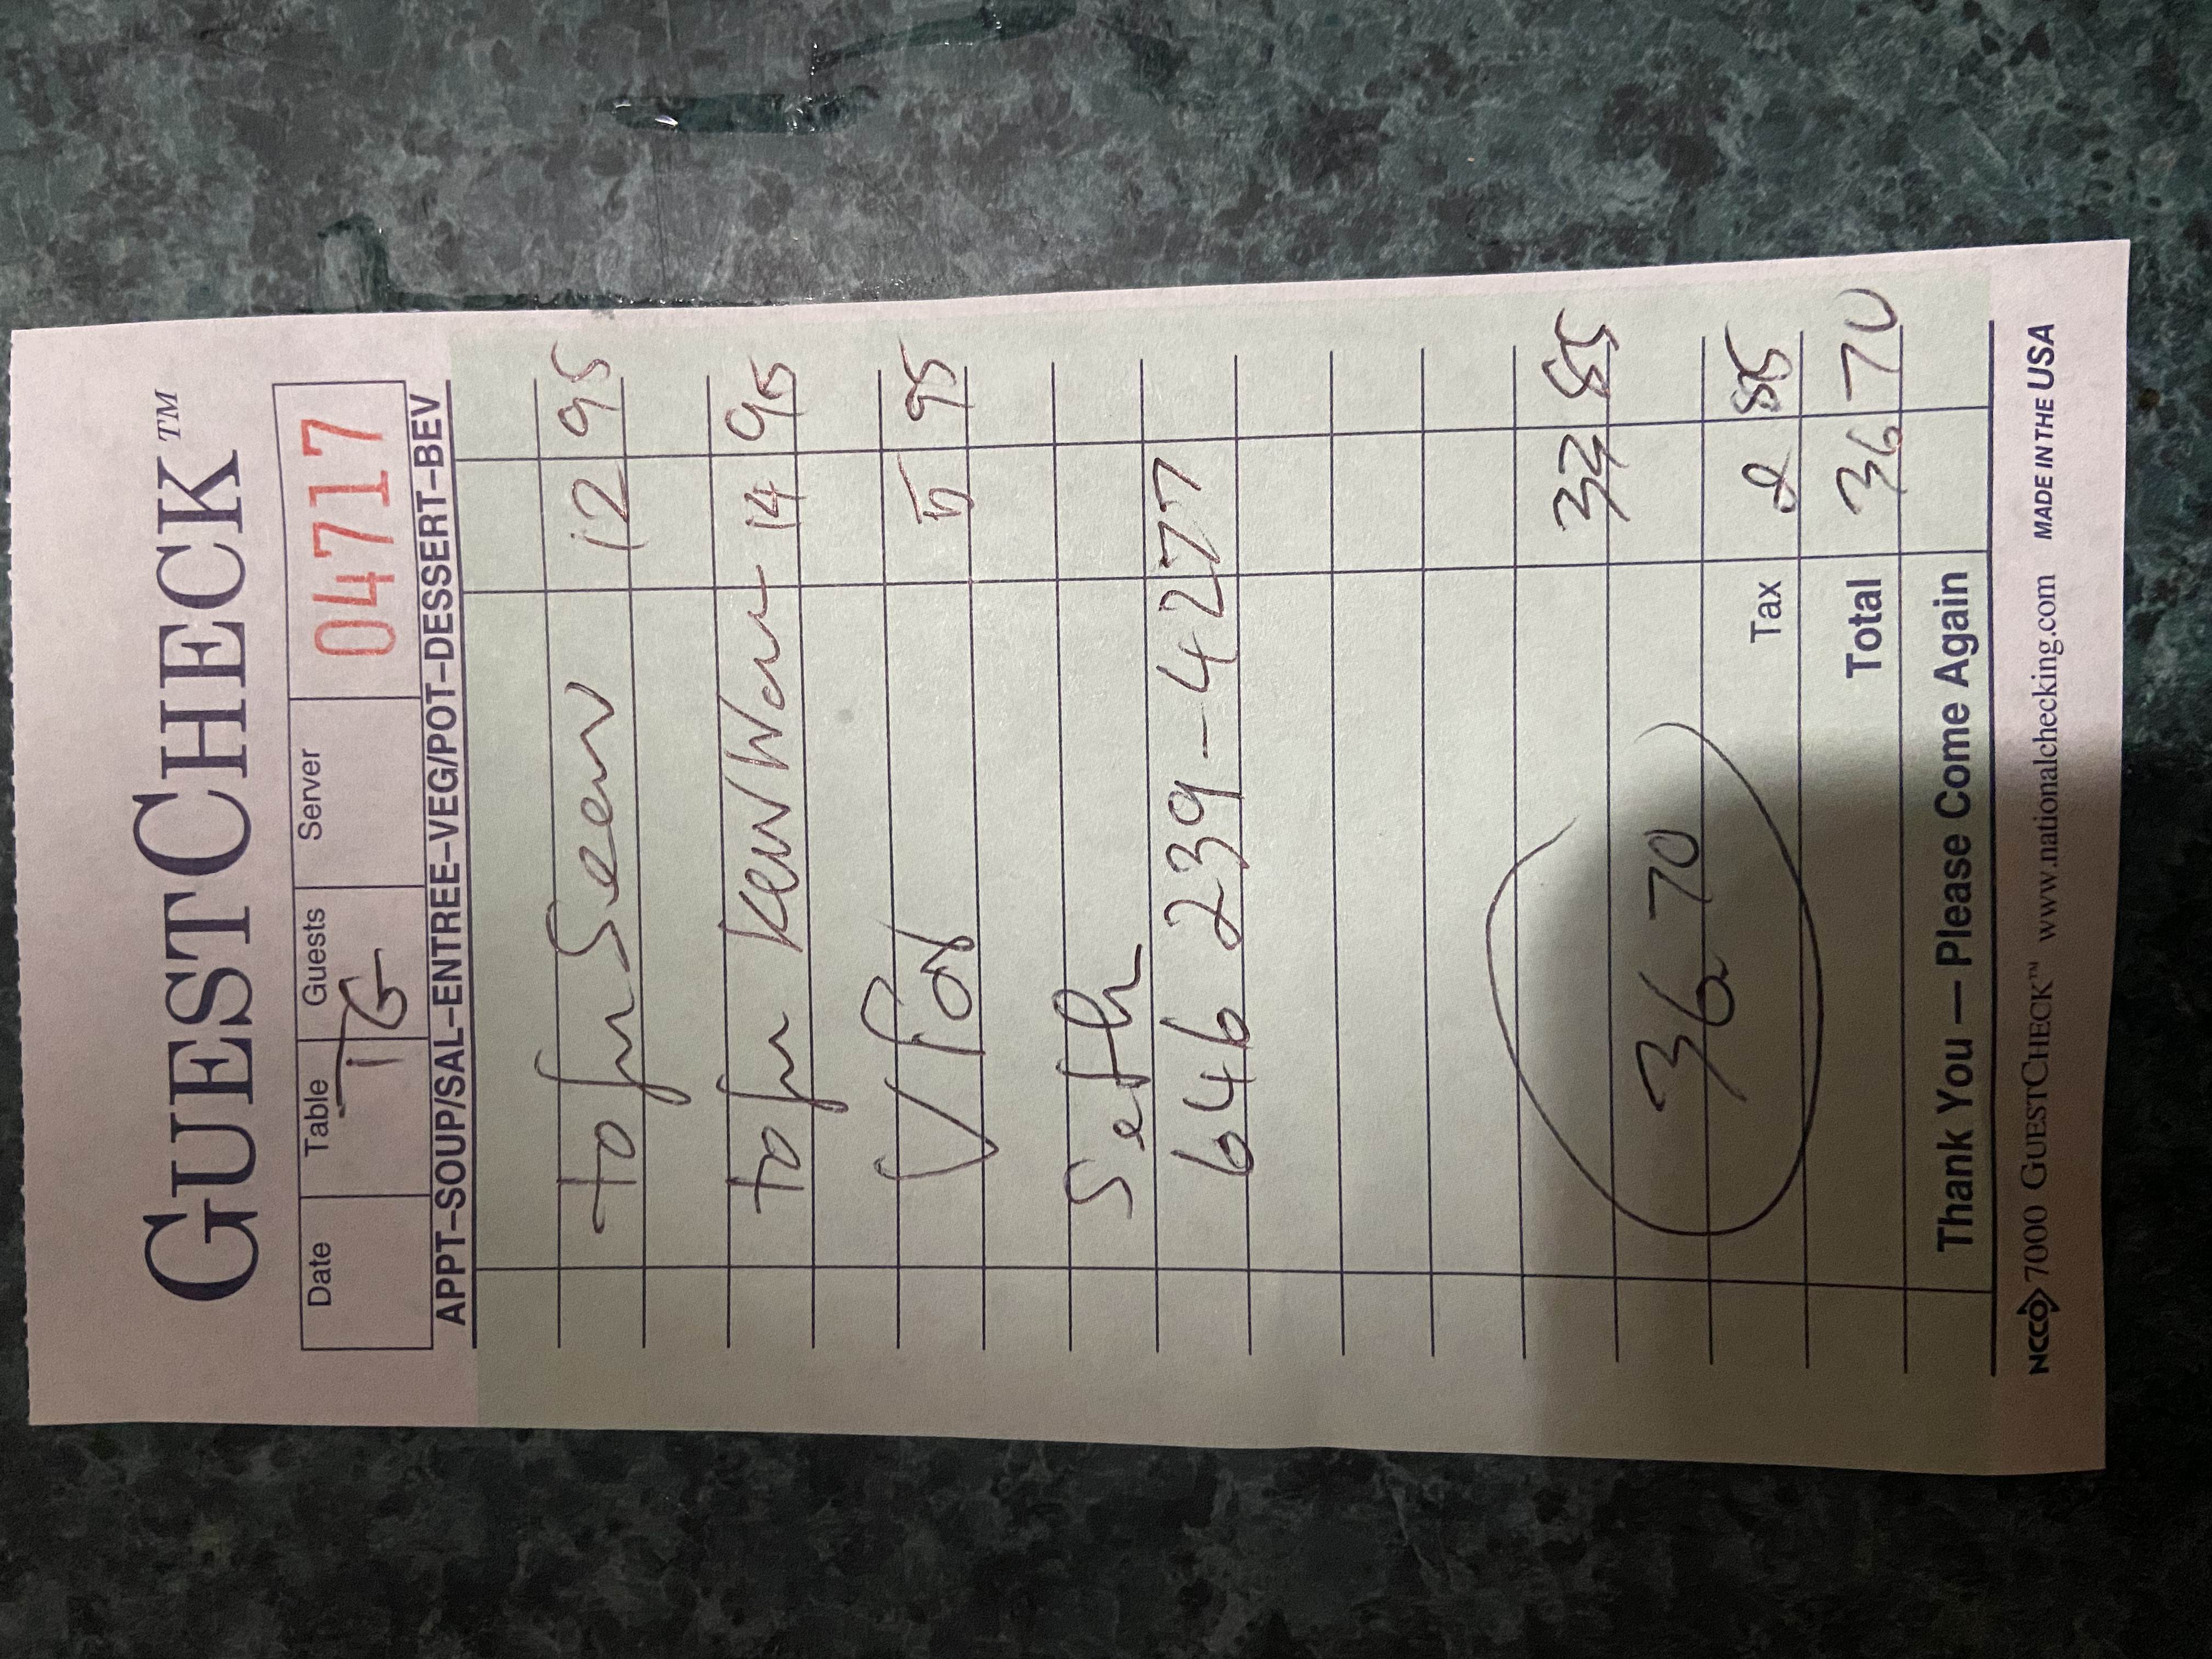 GUESTCHECK™
Date Table Guests Server 04717
TG
APPT–SOUP/SAL–ENTREE–VEG/POT–DESSERT–BEV
tofu Seew 12 95
tofu Kew Wan 14 95
V 5 95
Seth
646 239-4277
33 85
36 70
Tax 2 85
Total 36 70
Thank You — Please Come Again
NCCO 7000 GUESTCHECK™ www.nationalchecking.com MADE IN THE USA